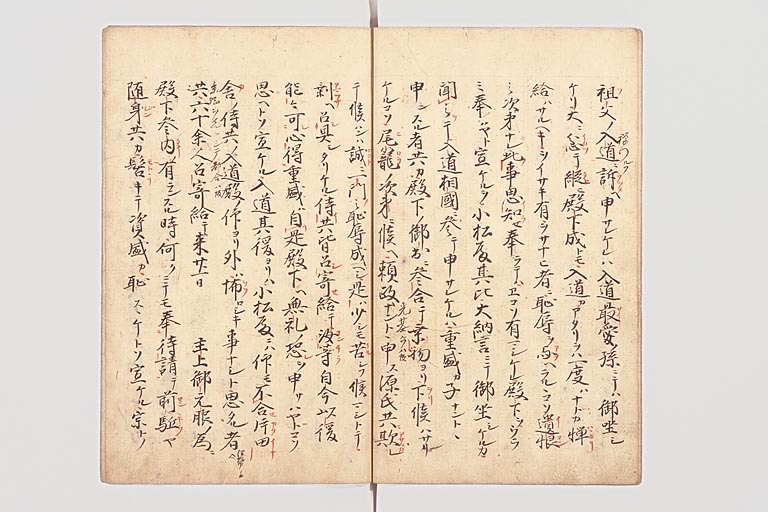 祖父ノ入道ニ訴へ申サレケレハ入道最愛ノ孫ニテハ御坐シ
ケリ大ニ忿テ縦ヒ殿下成トモ入道カアタリヲハ一度ハナトカ憚
給ハサルヘキ ヲサナキ者ニ恥辱ヲ与ヘラルコソ遺恨
ノ次第ナレ此事思知セ奉ラテハエコソ有マシケレ殿下ヲウラ
ミ奉ハヤト宣ケレハ小松殿其比大納言ニテ御坐シケルカ
聞ニテ入道相國ニ参テ申サレケルハ重盛カ子ナントヽ
申シスル者共カ殿下ノ御出ニ参合テ乗物ヨリ下候ハサリ
ケルコソ尾籠ノ次第ニ候へ頼政ナント申ス源氏共ニ欺レ
テ候ハンハ誠ニ一門ノ恥辱成ヘシ是ハ少シモ苦シク候マシトテ
剰へ召具シタリケル侍共皆召寄給テ汝等自今以後
能々可心得重盛カ自是殿下へ無礼ノ恐ヲ申サハヤトコソ
思ヘトソ宣ケル入道其後ヨリハ小松殿ニハ仰モ不合片田
舎ノ侍共ノ入道殿ノ仰ヨリ外ハ怖ロシキ事ナシト思名者
共六十余人召寄給テ来廿一日 主上御元服ノ為ニ
殿下参内有ヘシスル時何クニテモ奉待請テ前駈ヤ
随身共カ髻キテ資盛カ恥スヽケトソ宣ケル宗トノ